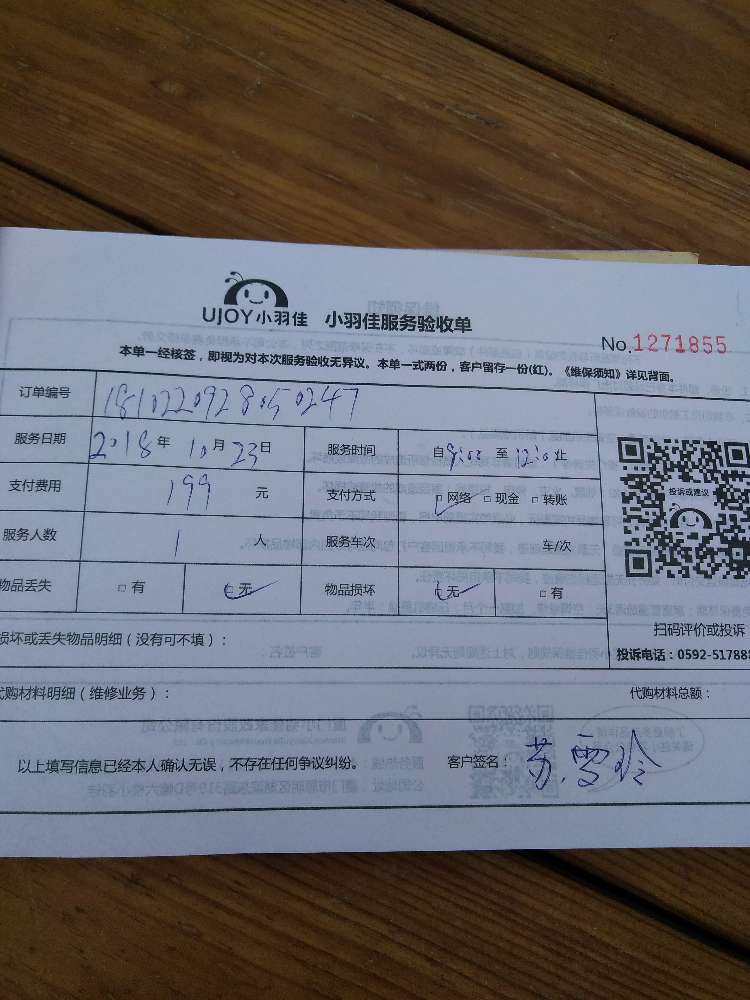 UJOY小羽佳 小羽佳服务验收单
No.1271855
本单一经核签，即视为对本次服务验收无异议。本单一式两份，客户留存一份(红)。《维保须知》详见背面。
订单编号 1810220928050247
服务日期 2018年10月23日 服务时间 自9:00至12:00止
投诉或建议
支付费用 199元 支付方式 网络 现金 转账
服务人数 1人 服务车次 车/次
物品丢失 有 无 物品损坏 无 有
扫码评价或投诉
损坏或丢失物品明细（没有可不填）：
投诉电话：0592-517888
代购材料明细（维修业务）： 代购材料总额：
以上填写信息已经本人确认无误，不存在任何争议纠纷。 客户签名：苏雪玲